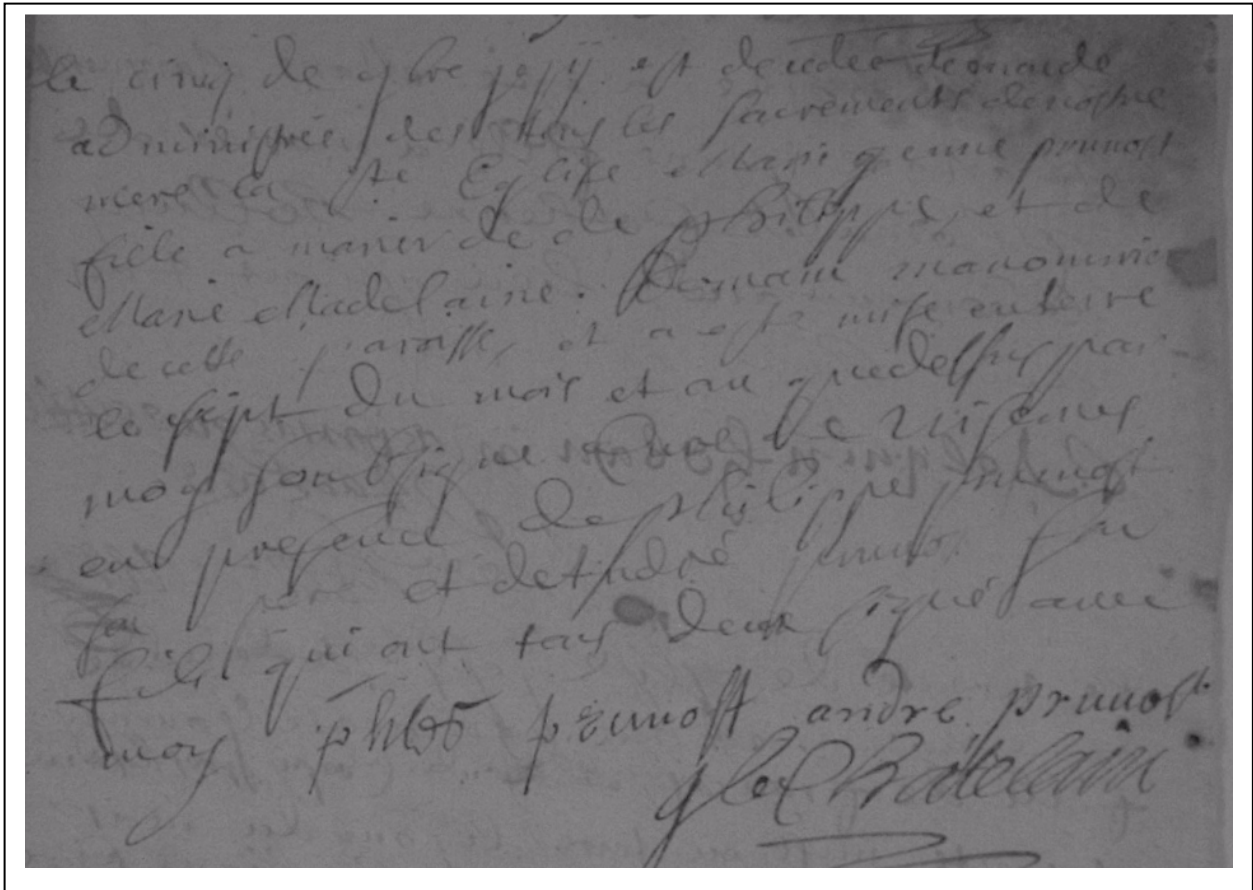 le cinq de 9bre est decedée
administrée des tous les sacrements de nostre
mere la ste Eglise Marie prunost
fille a marier de de philippe et de
Marie Madelaine manouvrier
de cette paroisse, et a esté mise en terre
le sept du mois et an que dessus par
moy soubsigné Curé de
en presence de philippe prunost
son pere et de André prunost son
fils qui ont tous deux signé avec
moy phles prunost andré prunost
Chatelain